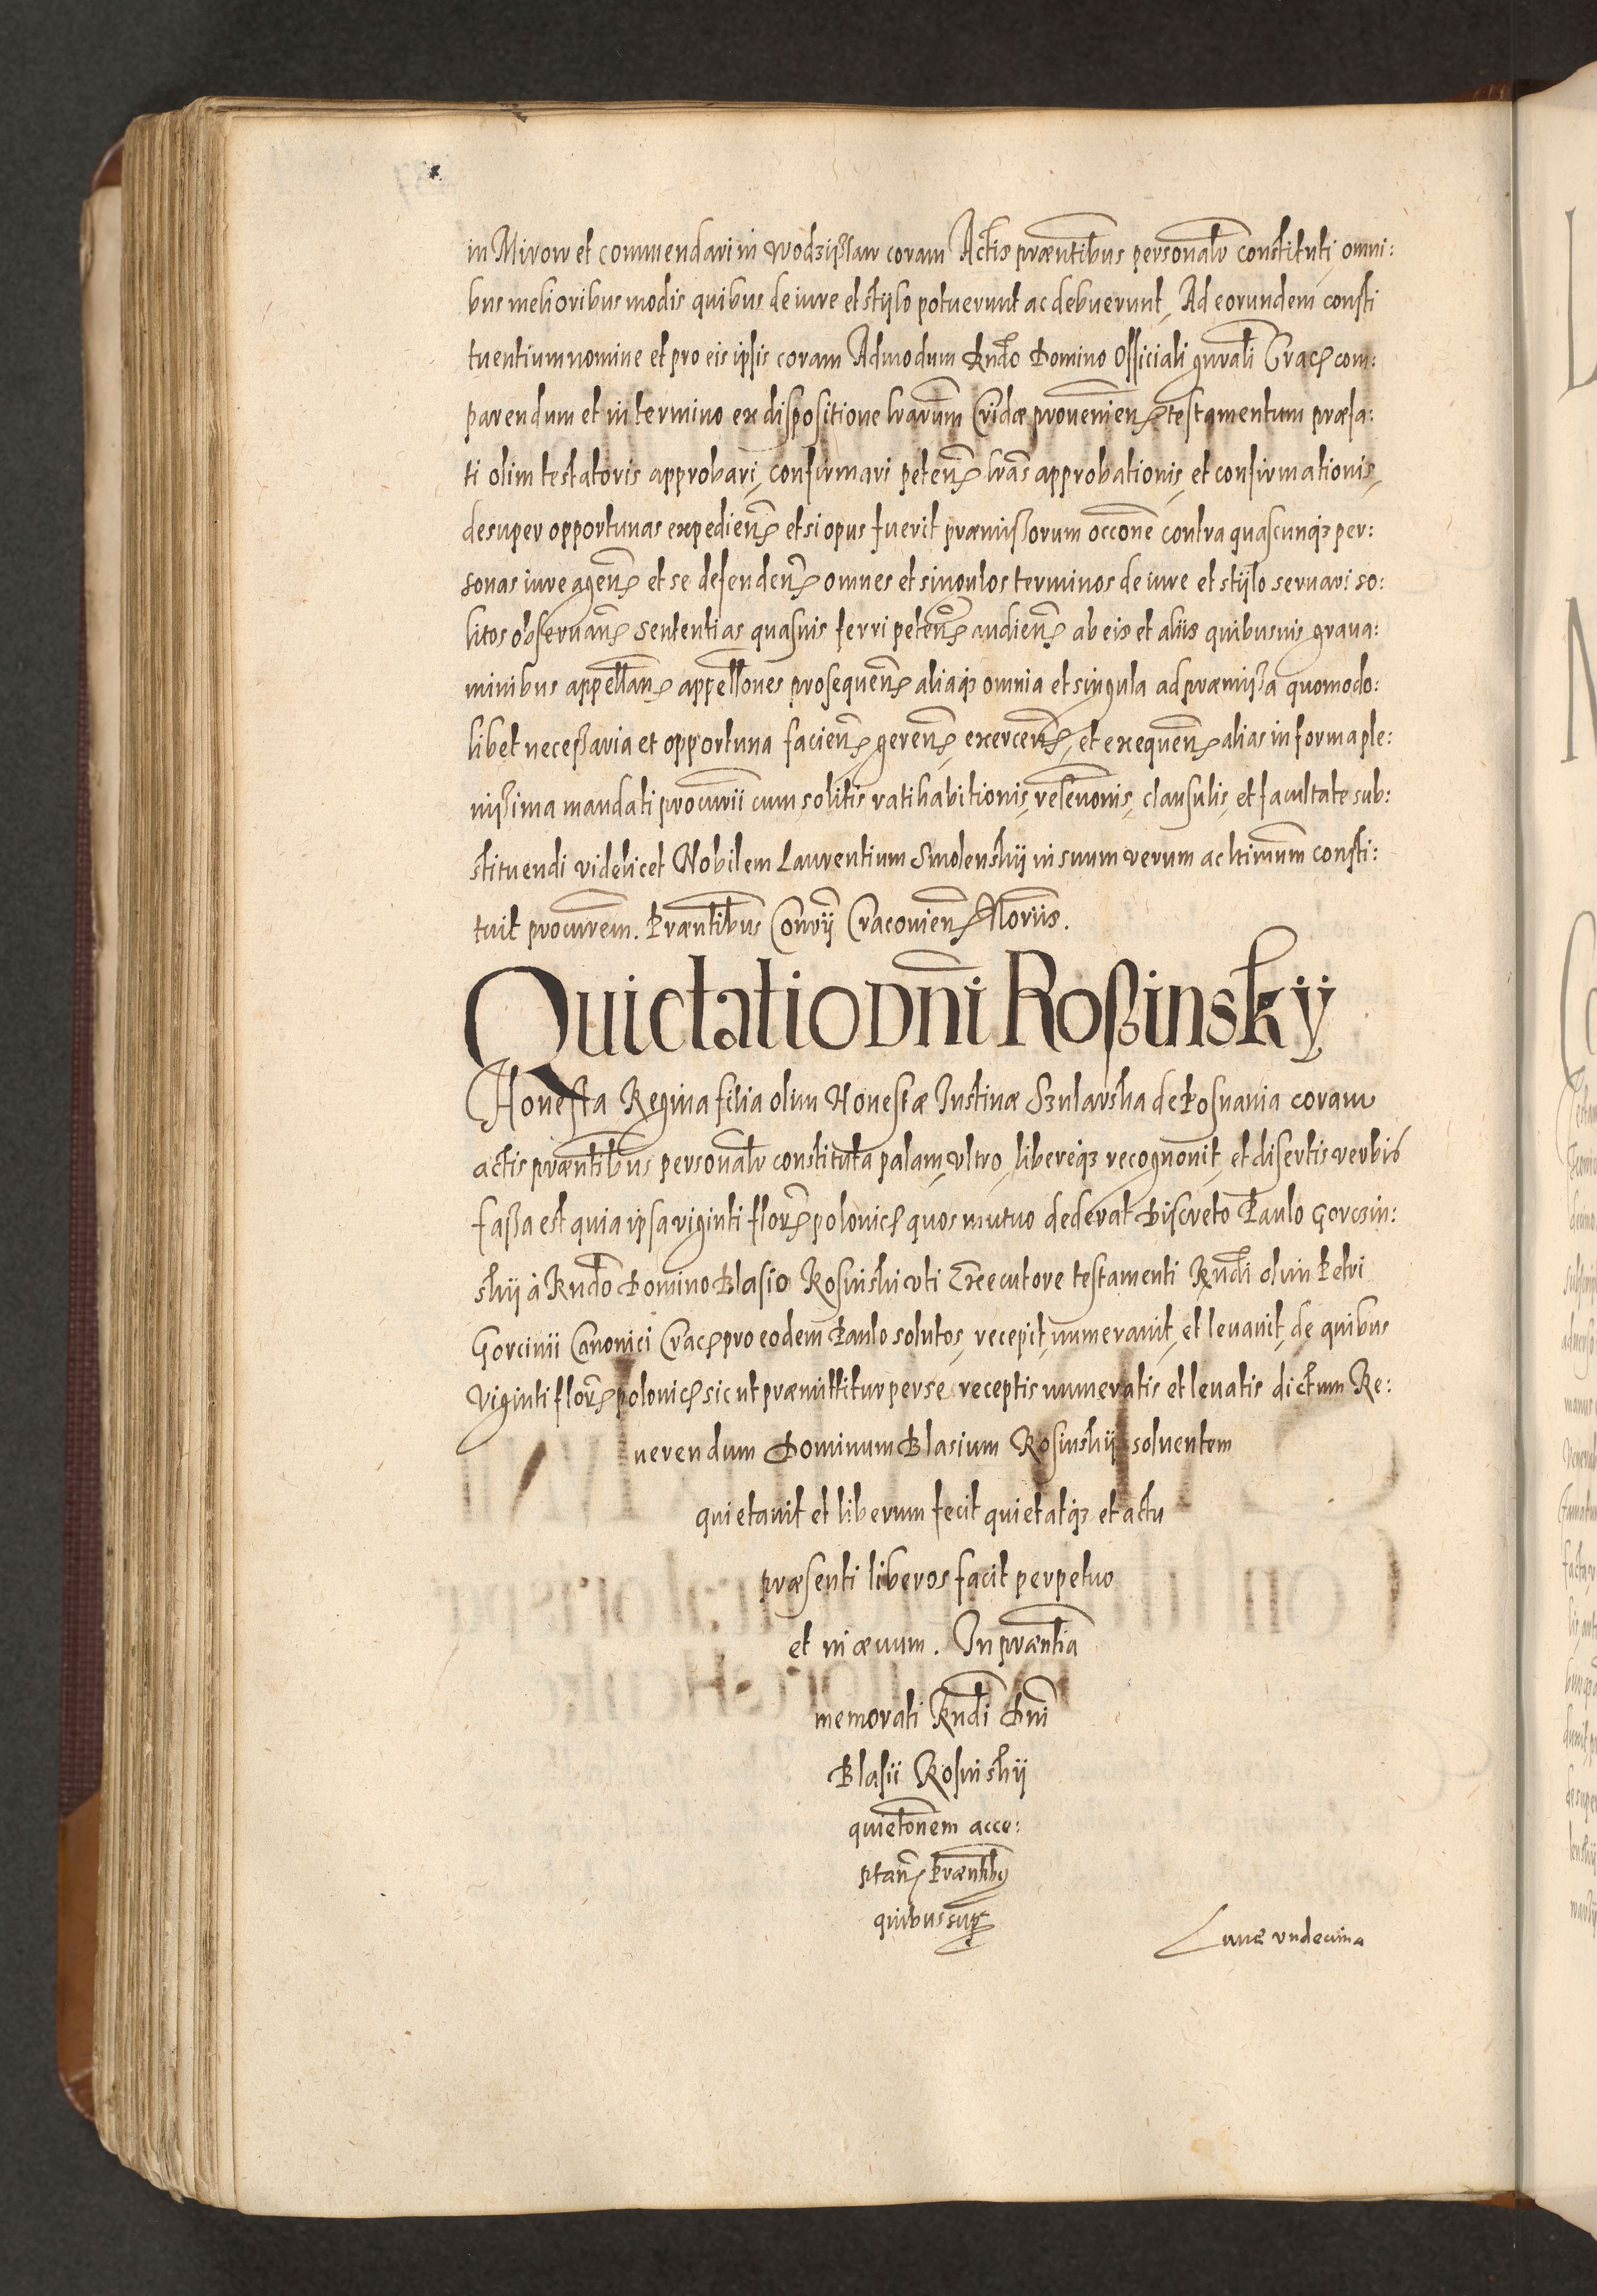 in Mirow et commendarij in Wodzißlaw coram Actis præntibus personalr constituti, omni:
bus melioribus modis quibus de iure et stÿlo potuerunt ac debuerunt, Ad eorundem consti
tuentium nomine et pro eis ipsis coram Admodum Rndo Domino Officiali gnrali Crac com:
parendum et in termino ex dispositione lrarum Cridæ prouenien testamentum præfa:
ti olim testatoris approbari, confirmari peten lras approbationis, et confirmationis,
desuper opportunas expedien et si opus fuerit præmissorum occone contra quascunq3 per:
sonas iure agen et se defenden omnes et singulos terminos de iure et stÿlo seruari so:
litos obseruan sententias quasuis ferri peten audien ab eis et aliis quibusuis graua:
minibus appellan appellones prosequen aliaq3 omnia et singula ad præmissa quomodo:
libet necessaria et opportuna facien, geren, exercen, et exequen alias in forma ple:
nissima mandati procurii cum solitis ratihabitionis, releuonis, clausulis, et facultate sub:
stituendi videlicet Nobilem Laurentium Smolenskij in suum verum ac ltimum consti:
tuit procurem. Præntibus Consrij Cracouien Aloriis.
Quictatio Dni Roßinsky
Honesta Regina filia olim Honestæ Iustinæ Szularska de Posnania coram
actis præntibus personalr constituta palam, vltro, libereq3 recognouit, et disertis verbis
fassa est quia ipsa viginti flor polonic quos mutuo dederat Discreto Paulo Gorczin:
skij à Rndo Domino Blasio Rosinski vti Executore testamenti Rndi olim Petri
Gorcinii Canonici Crac pro eodem Paulo solutos, recepit, numerauit, et leuauit, de quibus
Viginti flor polonic sic ut præmittitur per se receptis numeratis et leuatis dictum Re:
uerendum Dominum Blasium Rosinskij soluentem
quietauit et liberum fecit quietatq3 et actu
præsenti liberos facit perpetuo
et in æuum. In præntia
memorati Rndi Dni
Blasii Rosinskij
quietonem acce:
ptan Præntibus
quibus supr
Lunæ vndecima